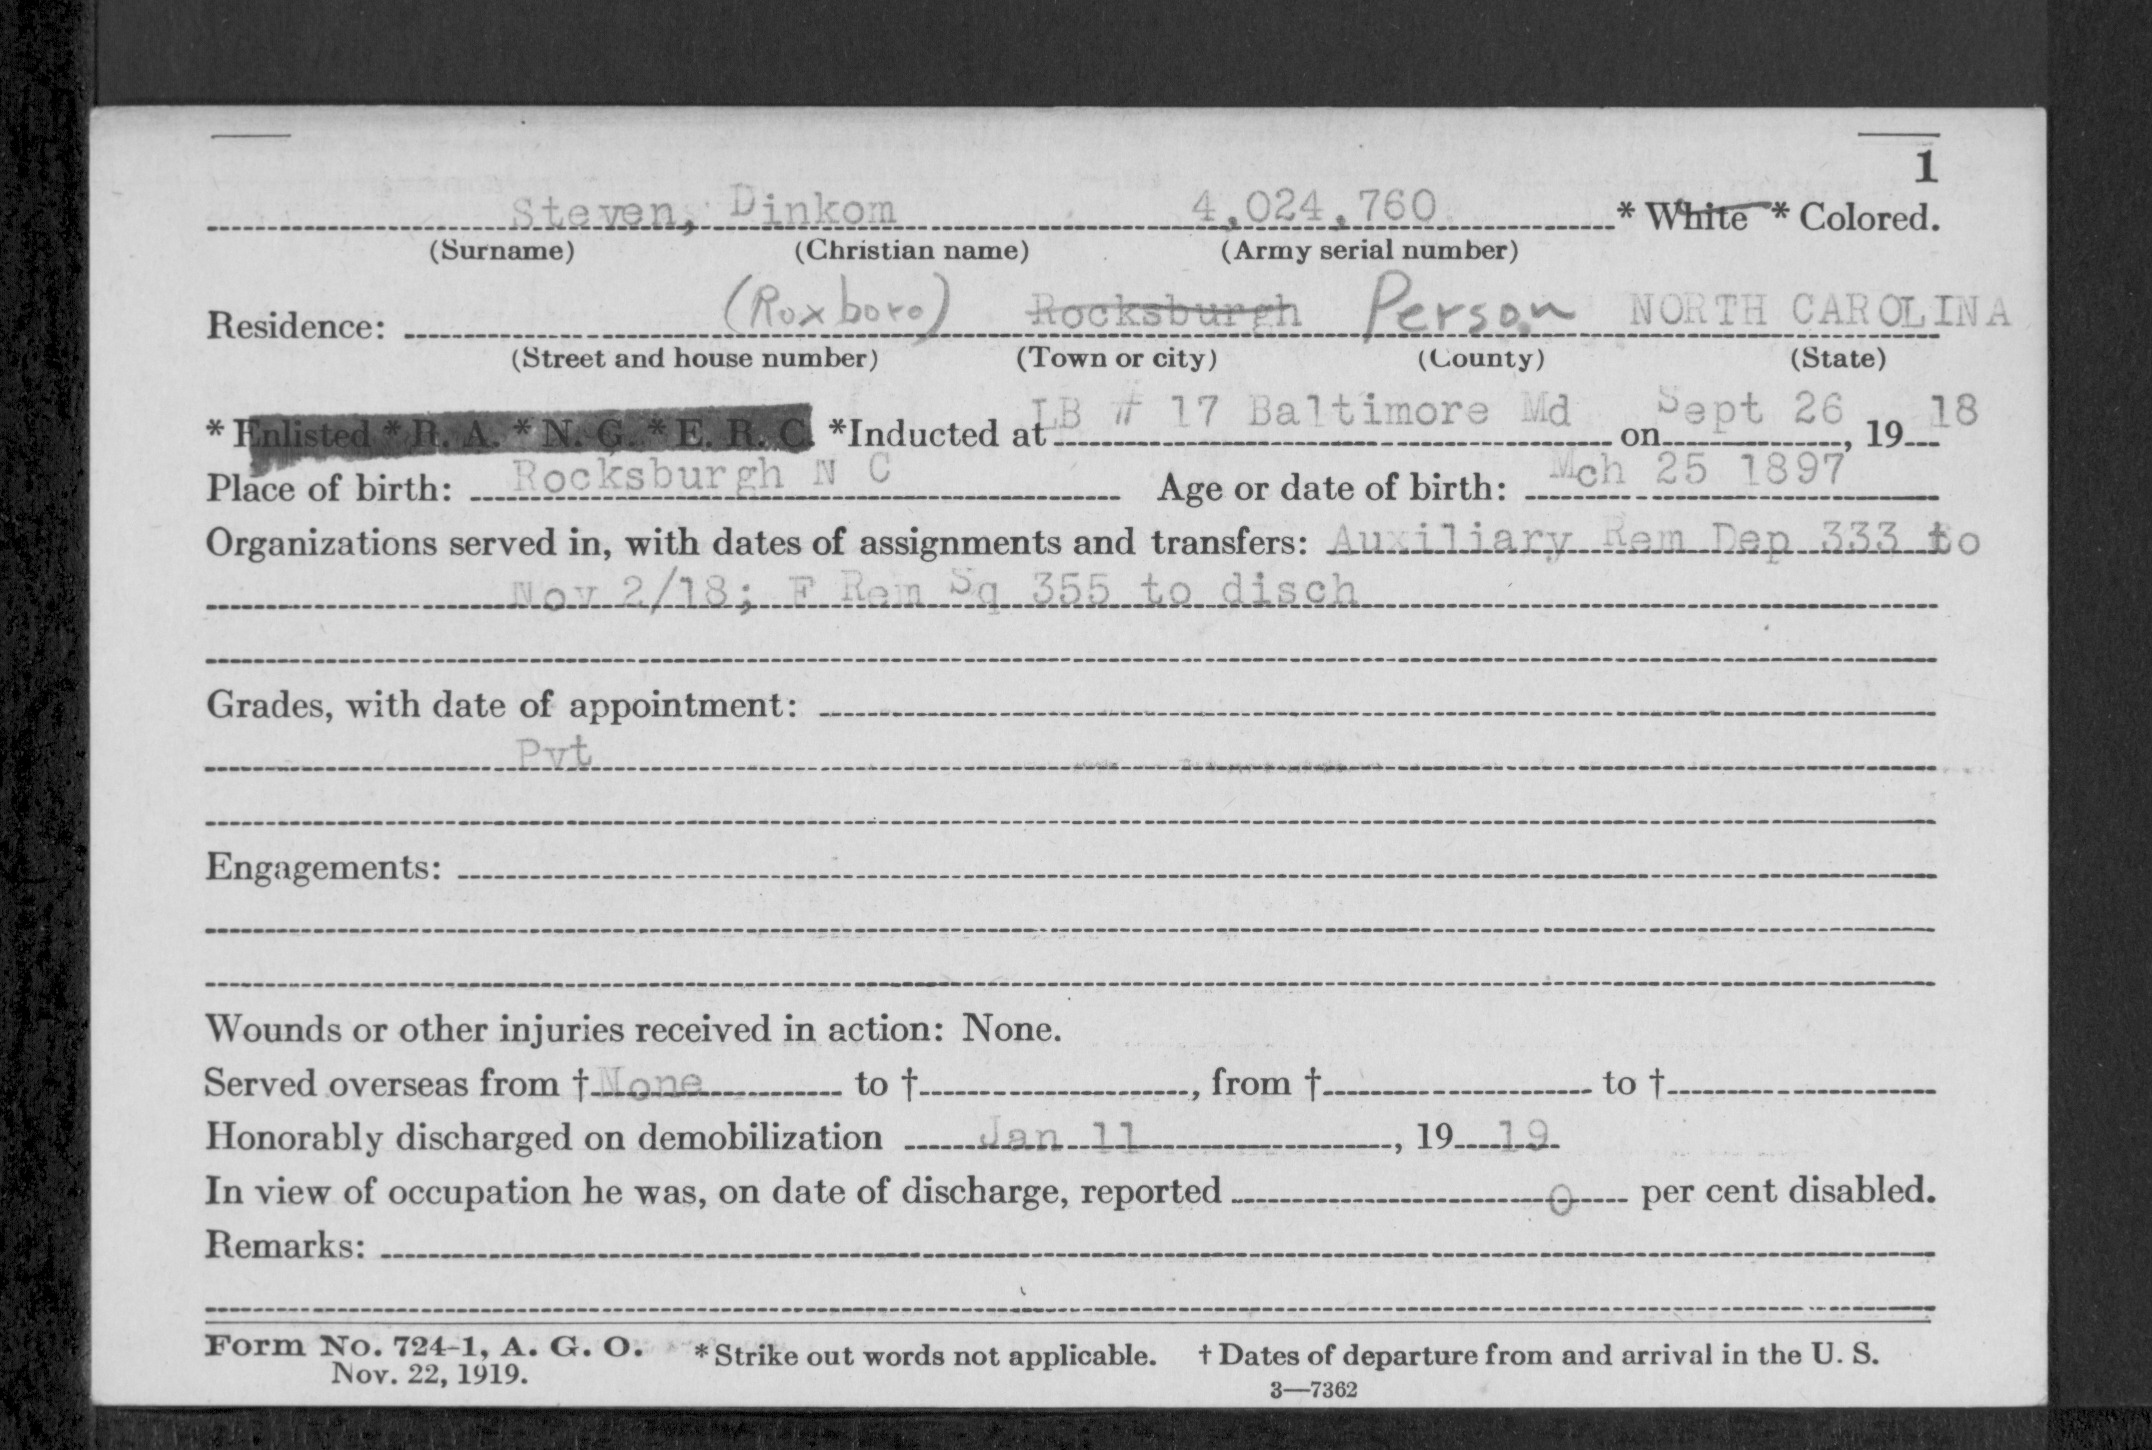 1
Steven, Dinkom 4,024,760 * White * Colored.
(Surname) (Christian name) (Army serial number)
Residence: (Roxboro) Rocksburgh Person NORTH CAROLINA
(Street and house number) (Town or city) (County) (State)
* Enlisted * R. A. * N. G. * E. R. C. *Inducted at LB # 17 Baltimore Md on Sept 26, 19 18
Place of birth: Rocksburgh N C Age or date of birth: Mch 25 1897
Organizations served in, with dates of assignments and transfers: Auxiliary Rem Dep 333 to
Nov 2/18; F Rem Sq 355 to disch
Grades, with date of appointment:
Pvt
Engagements:
Wounds or other injuries received in action: None.
Served overseas from † None to †, from † to †
Honorably discharged on demobilization Jan 11, 19 19
In view of occupation he was, on date of discharge, reported 0 per cent disabled.
Remarks:
Form No. 724-1, A. G. O. * Strike out words not applicable. † Dates of departure from and arrival in the U. S.
Nov. 22, 1919.
3—7362